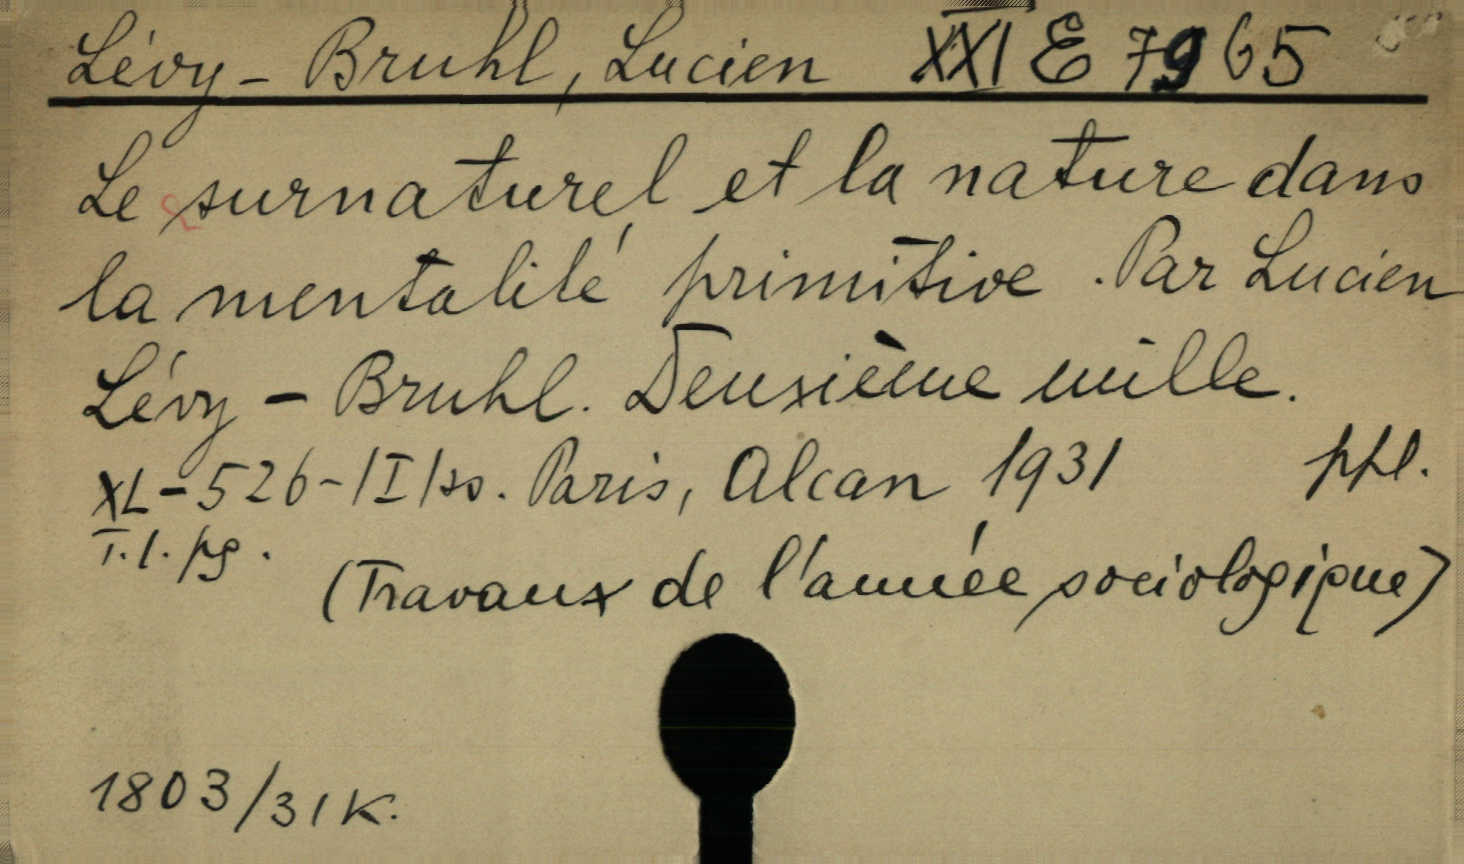 Lévy-Bruhl, Lucien XXI E 7965
Le surnaturel et la nature dans
la mentalité primitive. Par Lucien
Lévy-Bruhl. Deuxième mille.
XL-526-/I/ss. Paris, Alcan 1931 ppl.
T.l. pg.
(Travaux de l'année sociologique)
1803/31K.